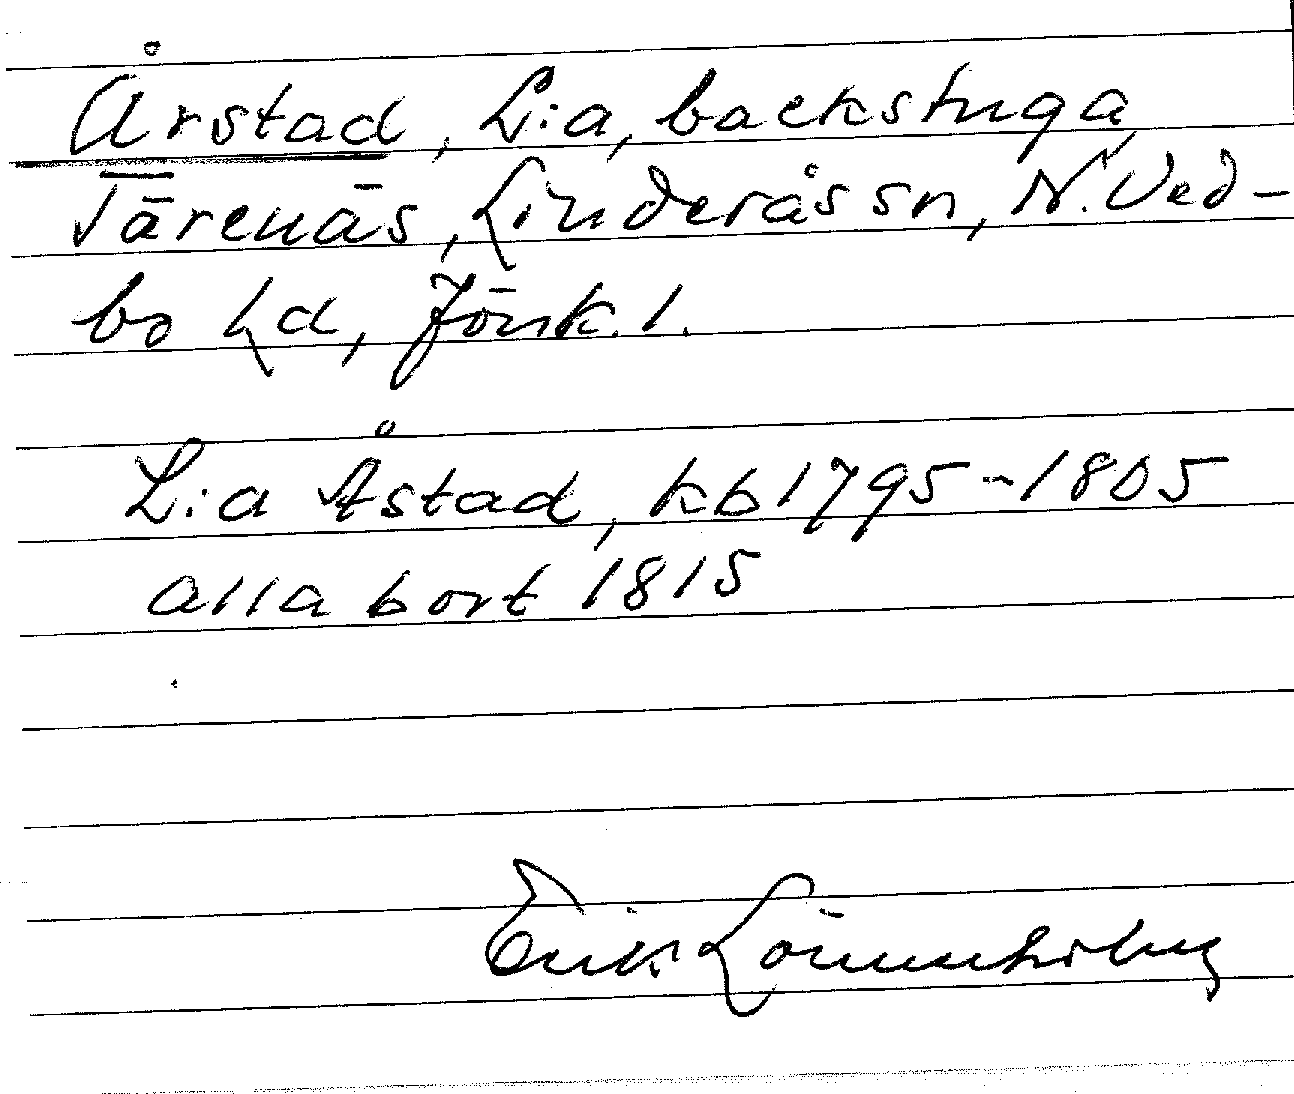 Årstad, L:a, backstuga,
Tärenäs, Linderås sn, N. Ved-
bo hd, Jönk. l.
L:a Åstad, kb 1795--1805
alla bort 1815
Erik